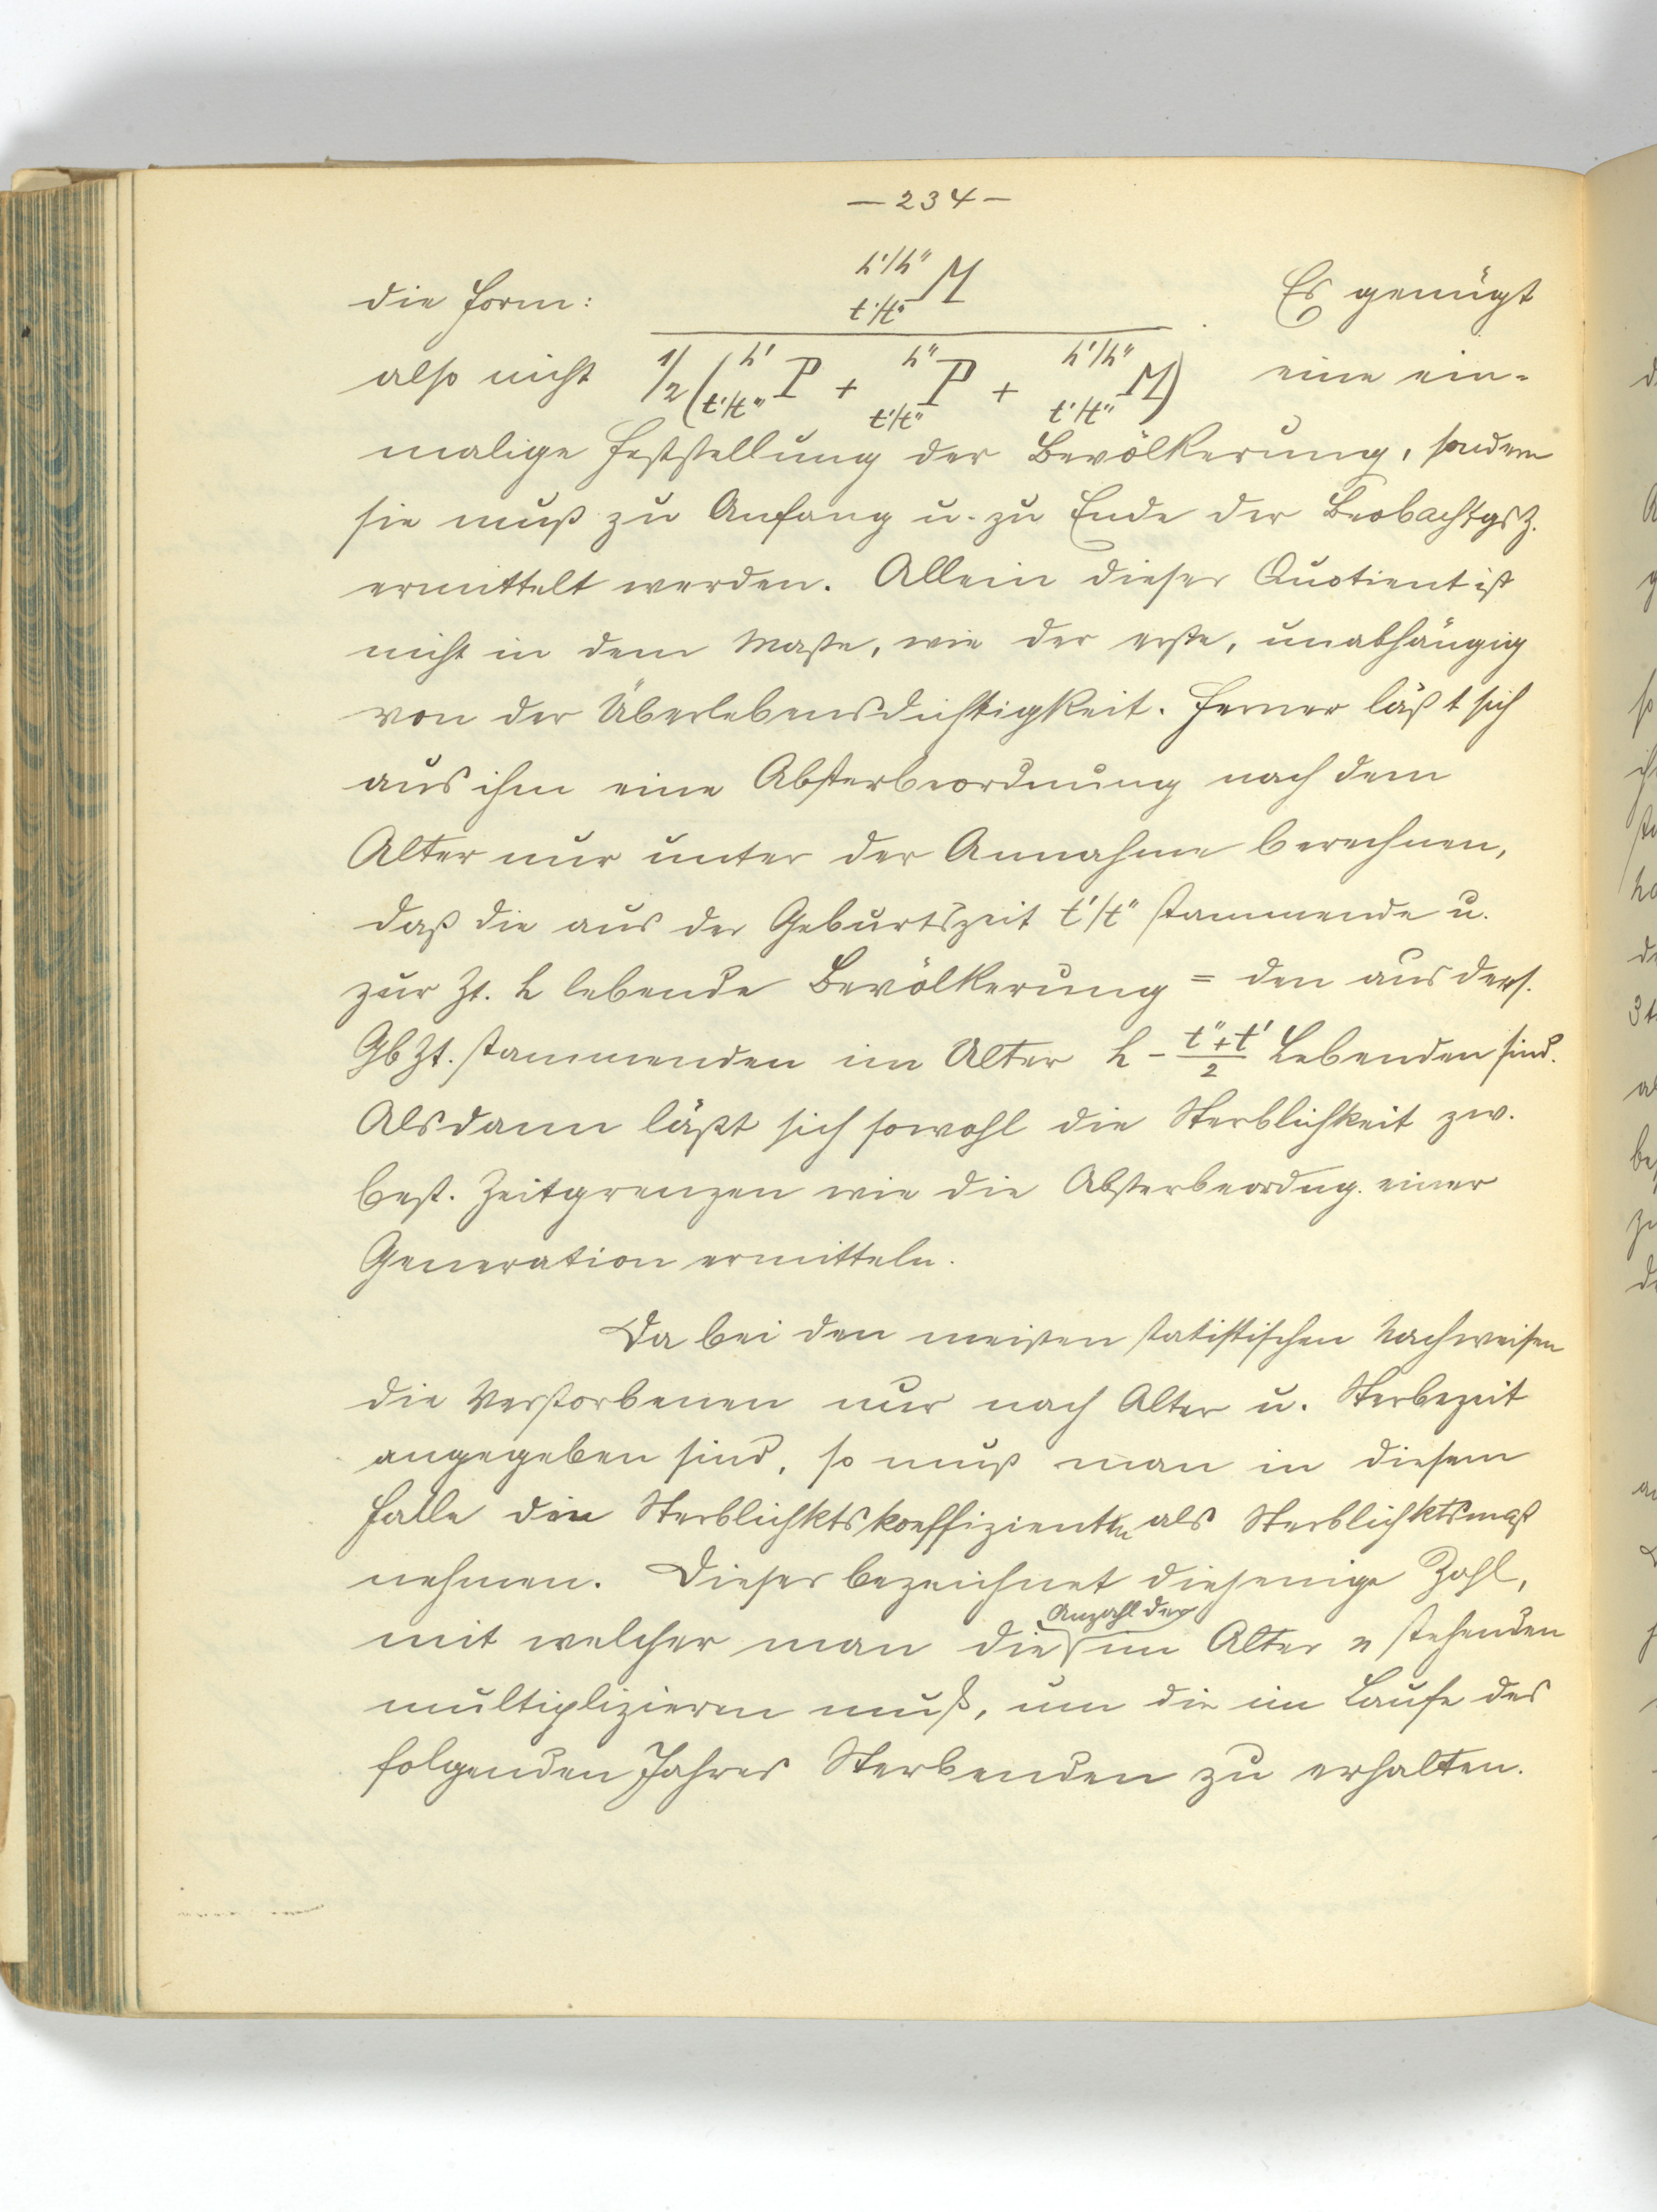 — 234 —
die Form: h'/h'' M t'/t'' . Es genügt
also nicht 1/2 ( h' P t'/t'' + h'' P t'/t'' + h'/h'' M t'/t'' ) eine ein-
malige Feststellung der Bevölkerung, sondern
sie muß zu Anfang u. zu Ende der Beobachtgsz.
ermittelt werden. Allein dieser Quotient ist
nicht in dem Maße, wie der erste, unabhängig
von der Überlebensdichtigkeit. Ferner läßt sich
aus ihm eine Absterbeordnung nach dem
Alter nur unter der Annahme berechnen,
daß die aus der Geburtszeit t'/t'' stammende u.
zur Zt. h lebende Bevölkerung = den aus ders.
GbZt. stammenden im Alter h - (t''+t')/2 Lebenden sind.
Alsdann läßt sich sowohl die Sterblichkeit zw.
best. Zeitgrenzen wie die Absterbeordng. einer
Generation ermitteln.
Da bei den meisten statistischen Nachweisen
die Verstorbenen nur nach Alter u. Sterbezeit
angegeben sind, so muß man in diesem
Falle den Sterblichktskoeffizienten als Sterblichktsmaß
nehmen. Dieser bezeichnet diejenige Zahl,
mit welcher man die Anzahl der im Alter n stehenden
multiplizieren muß, um die im Laufe des
folgenden Jahres Sterbenden zu erhalten.